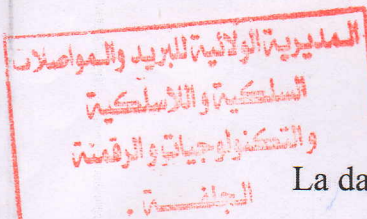 المديرية الولائية للبريد والمواصلات
السلكية واللاسلكية
والتكنولوجيات والرقمنة
الجلفــة .
La da